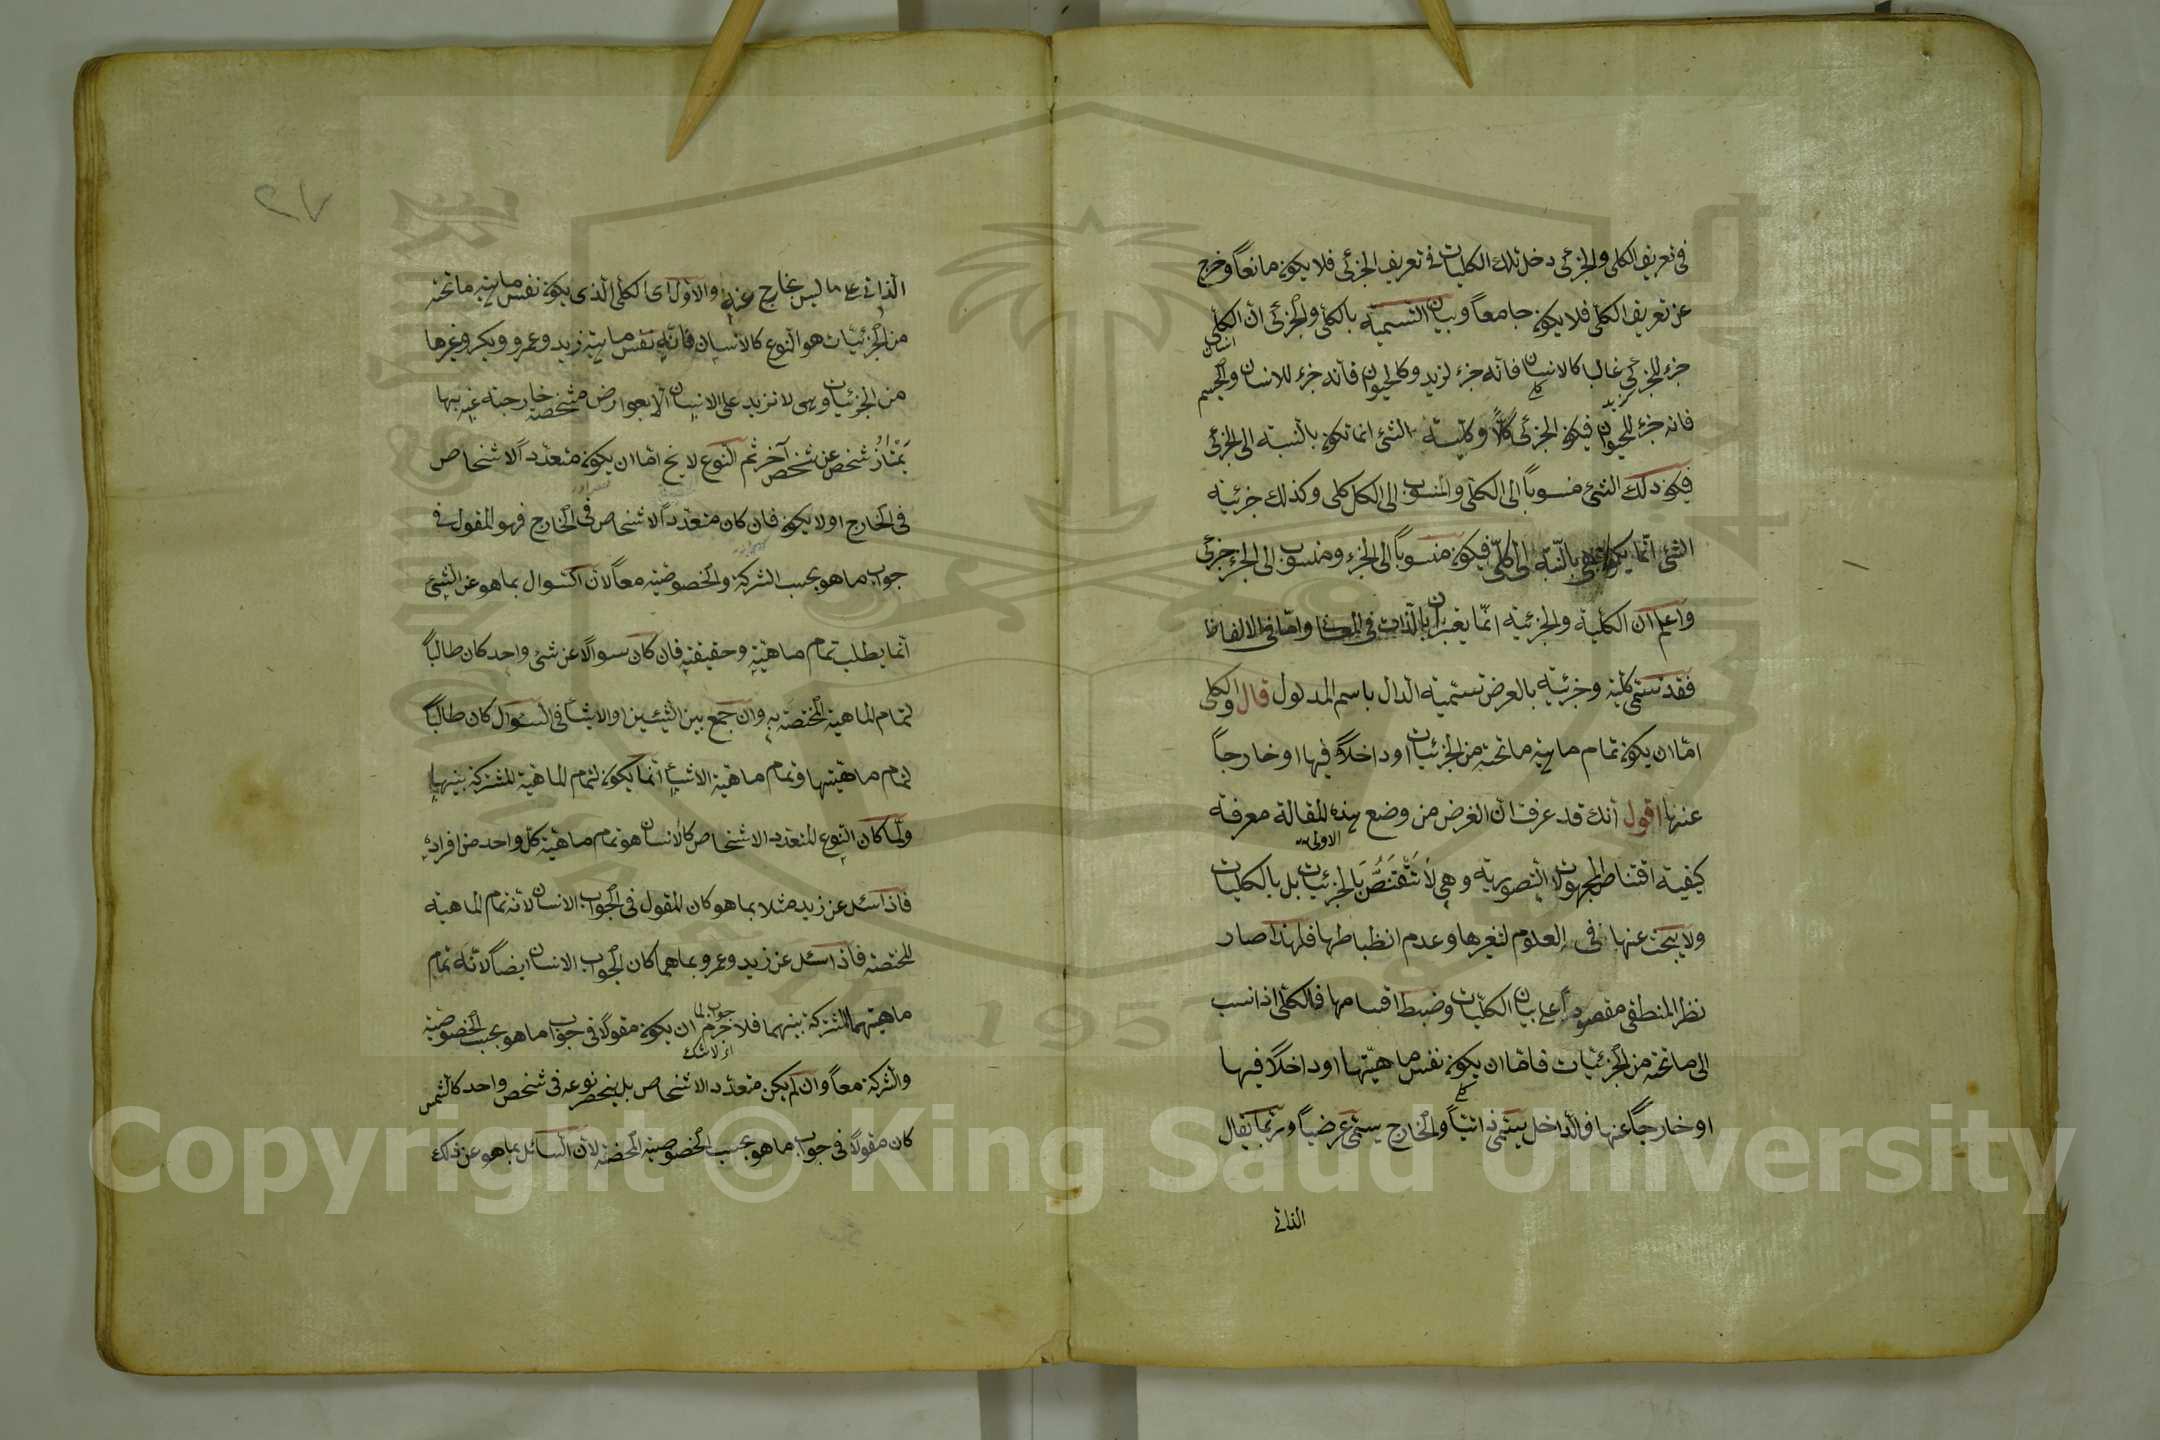 في تعريف الكلي والجزئي دخل تلك الكليات في تعريف الجزئي فلا يكون مانعاً وخرج
عن تعريف الكلي فلا يكون جامعاً وبيان التسمية بالكلي والجزئي ان الكلي
جزء للجزئي غالبا كالانسان فانه جزء لزيد وكالحيوان فانه جزء للانسان والجسم
فانه جزء للحيوان فيكون الجزئي كلاً وكلية الشئ انما تكون بالنسبة الى الجزئي
فيكون ذلك الشئ منسوباً الى الكل والمنسوب الى الكل كلى وكذلك جزئية
الشئ انما يكون هي بالنسبة الى الكلى فيكون منسوباً الى الجزء ومنسوب الى الجزء جزئي
واعلم ان الكلية والجزئية انما يعتبران بالذات في المعاني واما في الالفاظ
فقد تسمى كلية وجزئية بالعرض تسمية الدال باسم المدلول قال والكلى
اما ان يكون تمام ماهية ماتحته من الجزئيات او داخلاً فيها او خارجاً
عنها اقول انك قد عرفت ان الغرض من وضع هذه المقالة معرفة
الاولى
كيفية اقتناص المجهولات التصورية وهى لا تقتنص بالجزئيات بل بالكليات
ولا يبحث عنها في العلوم لتغيرها وعدم انظباطها فلهذا صار
نظر المنطقي مقصوراً على بيان الكليات وضبط اقسامها فالكلى اذا نسب
الى ماتحته من الجزئيات فاما ان يكون نفس ماهيتها او داخلاً فيها
او خارجاً عنها فالداخل يسمى ذاتياً والخارج يسمى عرضياً وربما يقال
الذاتي
الذاتي على ما ليس بخارج عنه والاول اى الكلى الذى يكون نفس ماهية ماتحته
من الجزئيات هو النوع كالانسان فانه نفس ماهية زيد وعمرو وبكر وغيرها
من الجزئيات وهى لا تزيد على الانسان الا بعوارض مشخصة خارجة عنه بها
يمتاز شخص عن شخص آخر ثم النوع لا يخ اما ان يكون متعدد الاشخاص
في الخارج اولا يكون فان كان متعدد الاشخاص في الخارج فهو المقول في
جواب ما هو بحسب الشركة والخصوصية معاً لان السوال بما هو عن الشئ
انما يطلب تمام ماهيته وحقيقته فان كان سوالاً عن شئ واحد كان طالباً
لتمام الماهية المختصة به وان جمع بين الشيئين او الاشياء في السوال كان طالباً
لتمام ماهيتها وتمام ماهية الاشياء انما يكون لتمام الماهية المشتركة بينها
ولما كان النوع المتعدد الاشخاص كالانسان هو تمام ماهية كل واحد من افراده
فاذا سئل عن زيد مثلا بما هو كان المقول في الجواب الانسان لانه تمام الماهية
المختصة فاذا سئل عن زيد وعمرو بماهما كان الجواب الانسان ايضاً لانه تمام
ماهيتهما المشتركة بينهما فلا جرم ان يكون مقولاً في جواب ما هو بحسب الخصوصية
والشركة معاً وان لم يكن متعدد الاشخاص بل ينحصر نوعه في شخص واحد كالشمس
كان مقولاً في جواب ما هو بحسب الخصوصية المحضة لان السائل بما هو عن ذلك
Copyright © King Saud University
1957